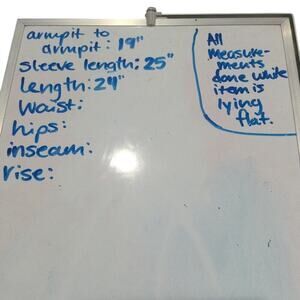 armpit to
armpit: 19"
sleeve length: 25"
length: 24"
waist:
hips:
inseam:
rise:
All
measure-
ments
done while
item is
lying
flat.